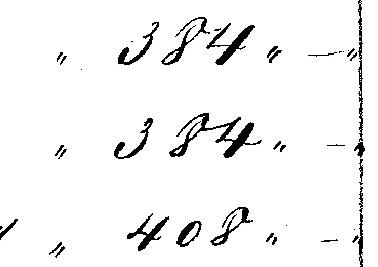 " 384 " — "
" 384 " — "
" 408 " — "